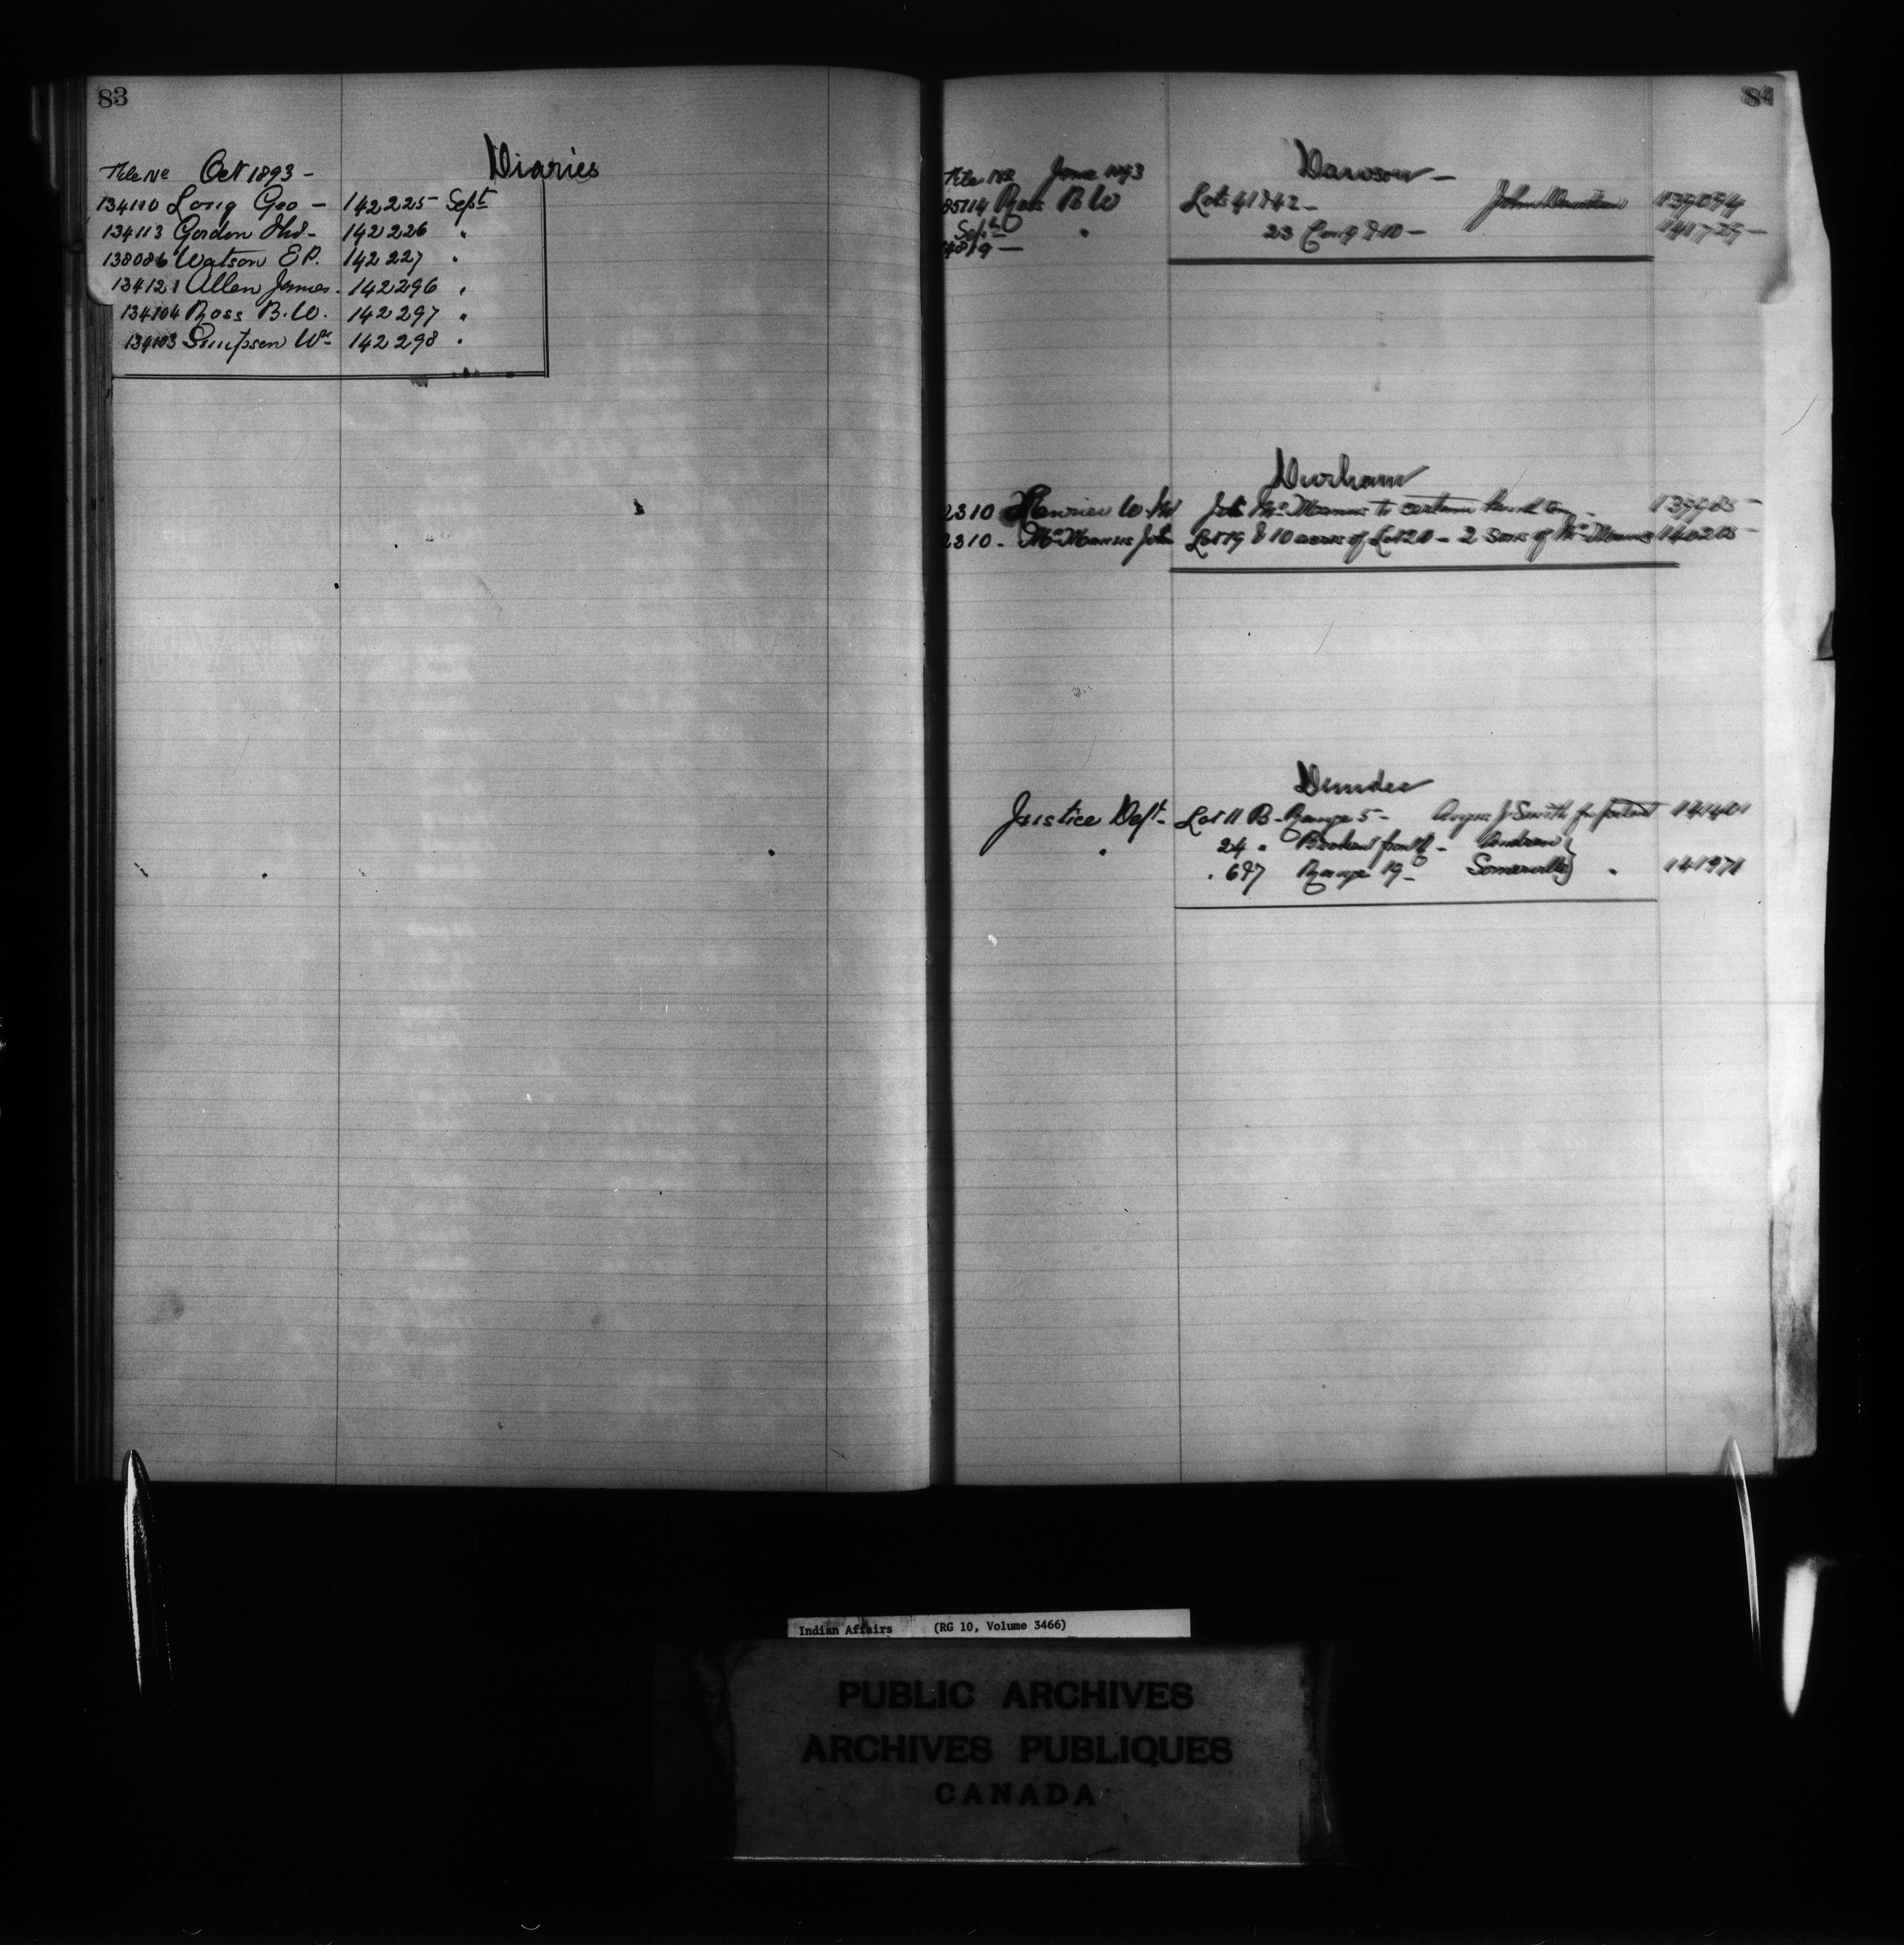 83
Diaries
File No Oct 1893 -
134110 Long Geo - 142225 Sept
134113 Gordon Jno - 142226 "
138086 Watson E P. 142227 "
134121 Allen James. 142296 "
134104 Ross B. W. 142297 "
134103 Simpson Wm 142298 "
84
Dawson -
File No June 1893
85114 Ross B W Lots 41 & 42 - John 139094
Sept " 23 Con 9 & 10 - 141729 -
14819 -
Durham
2310 W. Jno Mc Manus to certain land 139985 -
2310 - McManus John Lot 19 & 10 acres of Lot 20 - 2 sons of McManus 140205 -
Dundee
Justice Dept - Lot 11 B - Range 5 - Angus J Smith for patent 141401
" 24 " Broken front - Andrew }
. 6 & 7 Range 19 - Somerville } " 141971
Indian Affairs (RG 10, Volume 3466)
PUBLIC ARCHIVES
ARCHIVES PUBLIQUES
CANADA